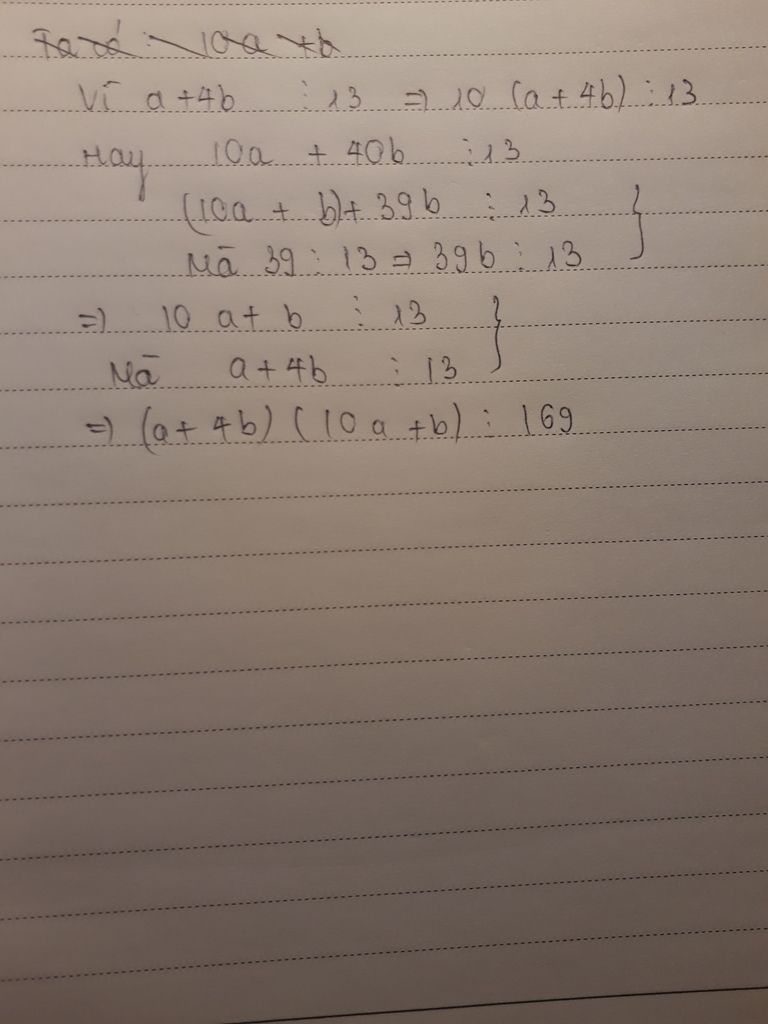 Ta có : 10a + b
Vì a + 4b ⋮ 13 ⇒ 10 (a + 4b) ⋮ 13
Hay 10a + 40b ⋮ 13
(10a + b) + 39b ⋮ 13 }
Mà 39 ⋮ 13 ⇒ 39b ⋮ 13
⇒ 10 a + b ⋮ 13 }
Mà a + 4b ⋮ 13
⇒ (a + 4b) (10 a + b) ⋮ 169